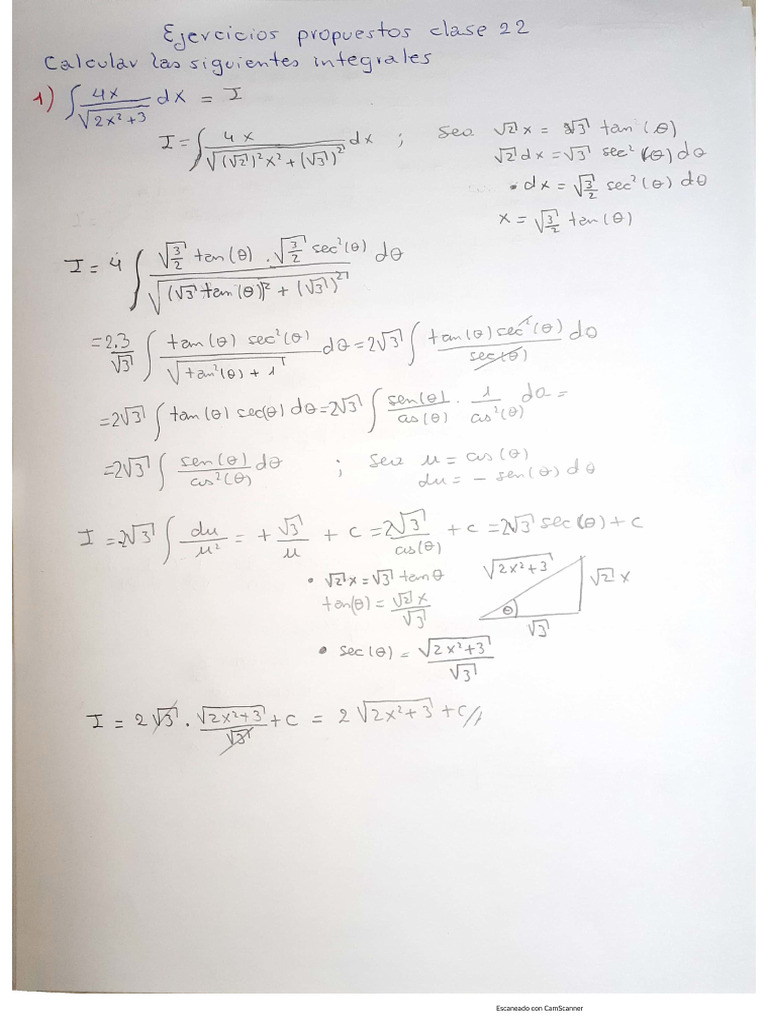 Ejercicios propuestos clase 22
Calcular las siguientes integrales
1) ∫ 4x/√(2x²+3) dx = I
I = ∫ 4x/√((√2)²x² + (√3)²) dx ; Sea √2 x = √3 tan(θ)
√2 dx = √3 sec²(θ) dθ
• dx = √(3/2) sec²(θ) dθ
x = √(3/2) tan(θ)
I = 4 ∫ √(3/2) tan(θ) · √(3/2) sec²(θ)/√((√3 tan(θ))² + (√3)²) dθ
= 2.3/√3 ∫ tan(θ) sec²(θ)/√(tan²(θ) + 1) dθ = 2√3 ∫ tan(θ) sec²(θ)/sec(θ) dθ
= 2√3 ∫ tan(θ) sec(θ) dθ = 2√3 ∫ sen(θ)/cos(θ) · 1/cos²(θ) dθ =
= 2√3 ∫ sen(θ)/cos²(θ) dθ ; Sea u = cos(θ)
du = - sen(θ) dθ
I = 2√3 ∫ du/u² = + √3/u + c = 2√3/cos(θ) + c = 2√3 sec(θ) + c
• √2 x = √3 tan θ
tan(θ) = √2 x/√3
√(2x²+3)
√2 x
θ
√3
• sec(θ) = √(2x²+3)/√3
I = 2√3 · √(2x²+3)/√3 + c = 2 √(2x²+3) + c//
Escaneado con CamScanner